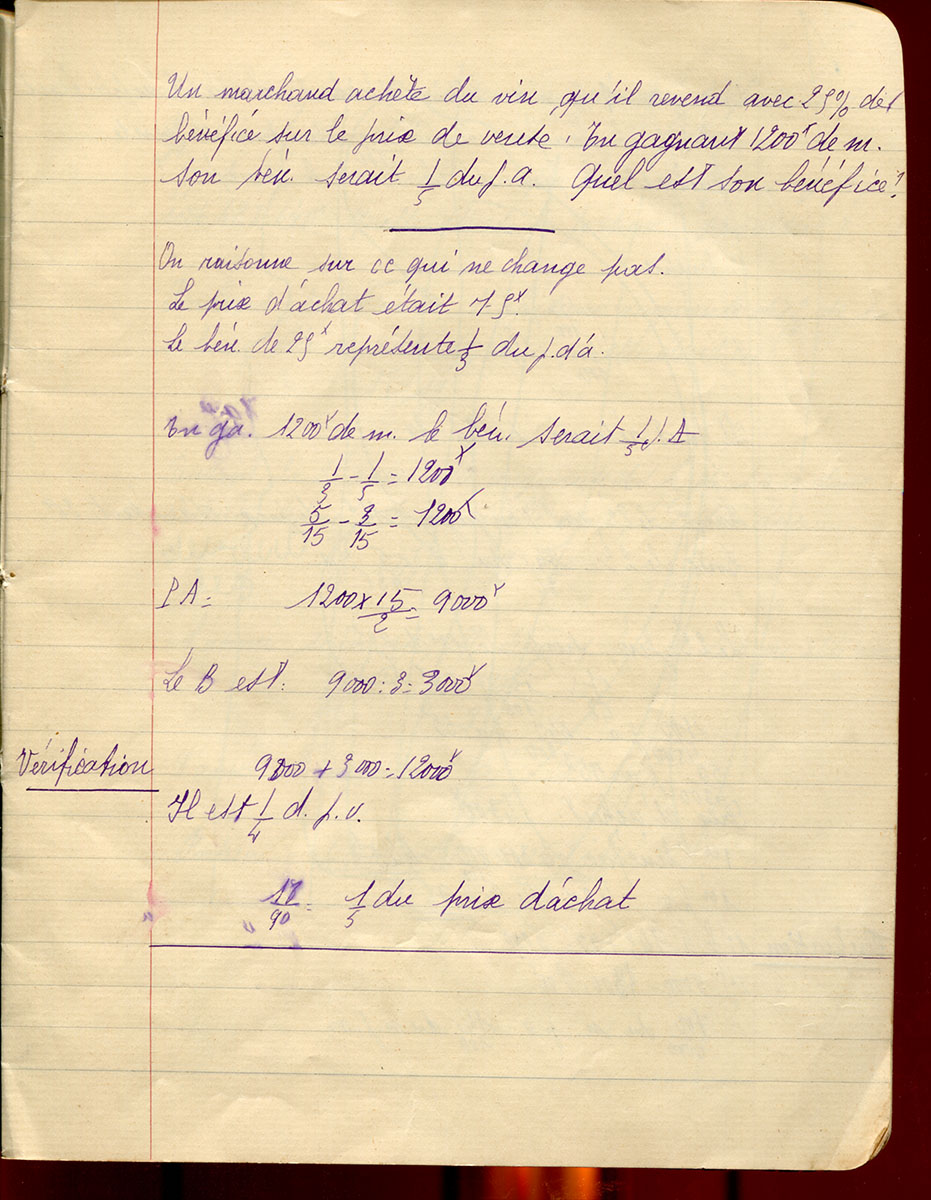 Un marchand achète du vin qu'il revend avec 25% de
bénéfice sur le prix de vente. En gagnant 1200f de m.
son bén. serait 1/5 du p. a. Quel est son bénéfice?
On raisonne sur ce qui ne change pas.
Le prix d'achat était 75f.
Le bén. de 25f représente 1/3 du p. d'a.
En ga. 1200f de m. le bén. serait 1/5 p. A
1/3 - 1/5 = 1200f
5/15 - 3/15 = 1200f
PA = 1200 x 15/2 = 9000f
Le B est: 9000 : 3 = 3000f
Vérification 9000 + 3000 = 12000f
Il est 1/4 d. p. v.
/90 = 1/5 du prix d'achat